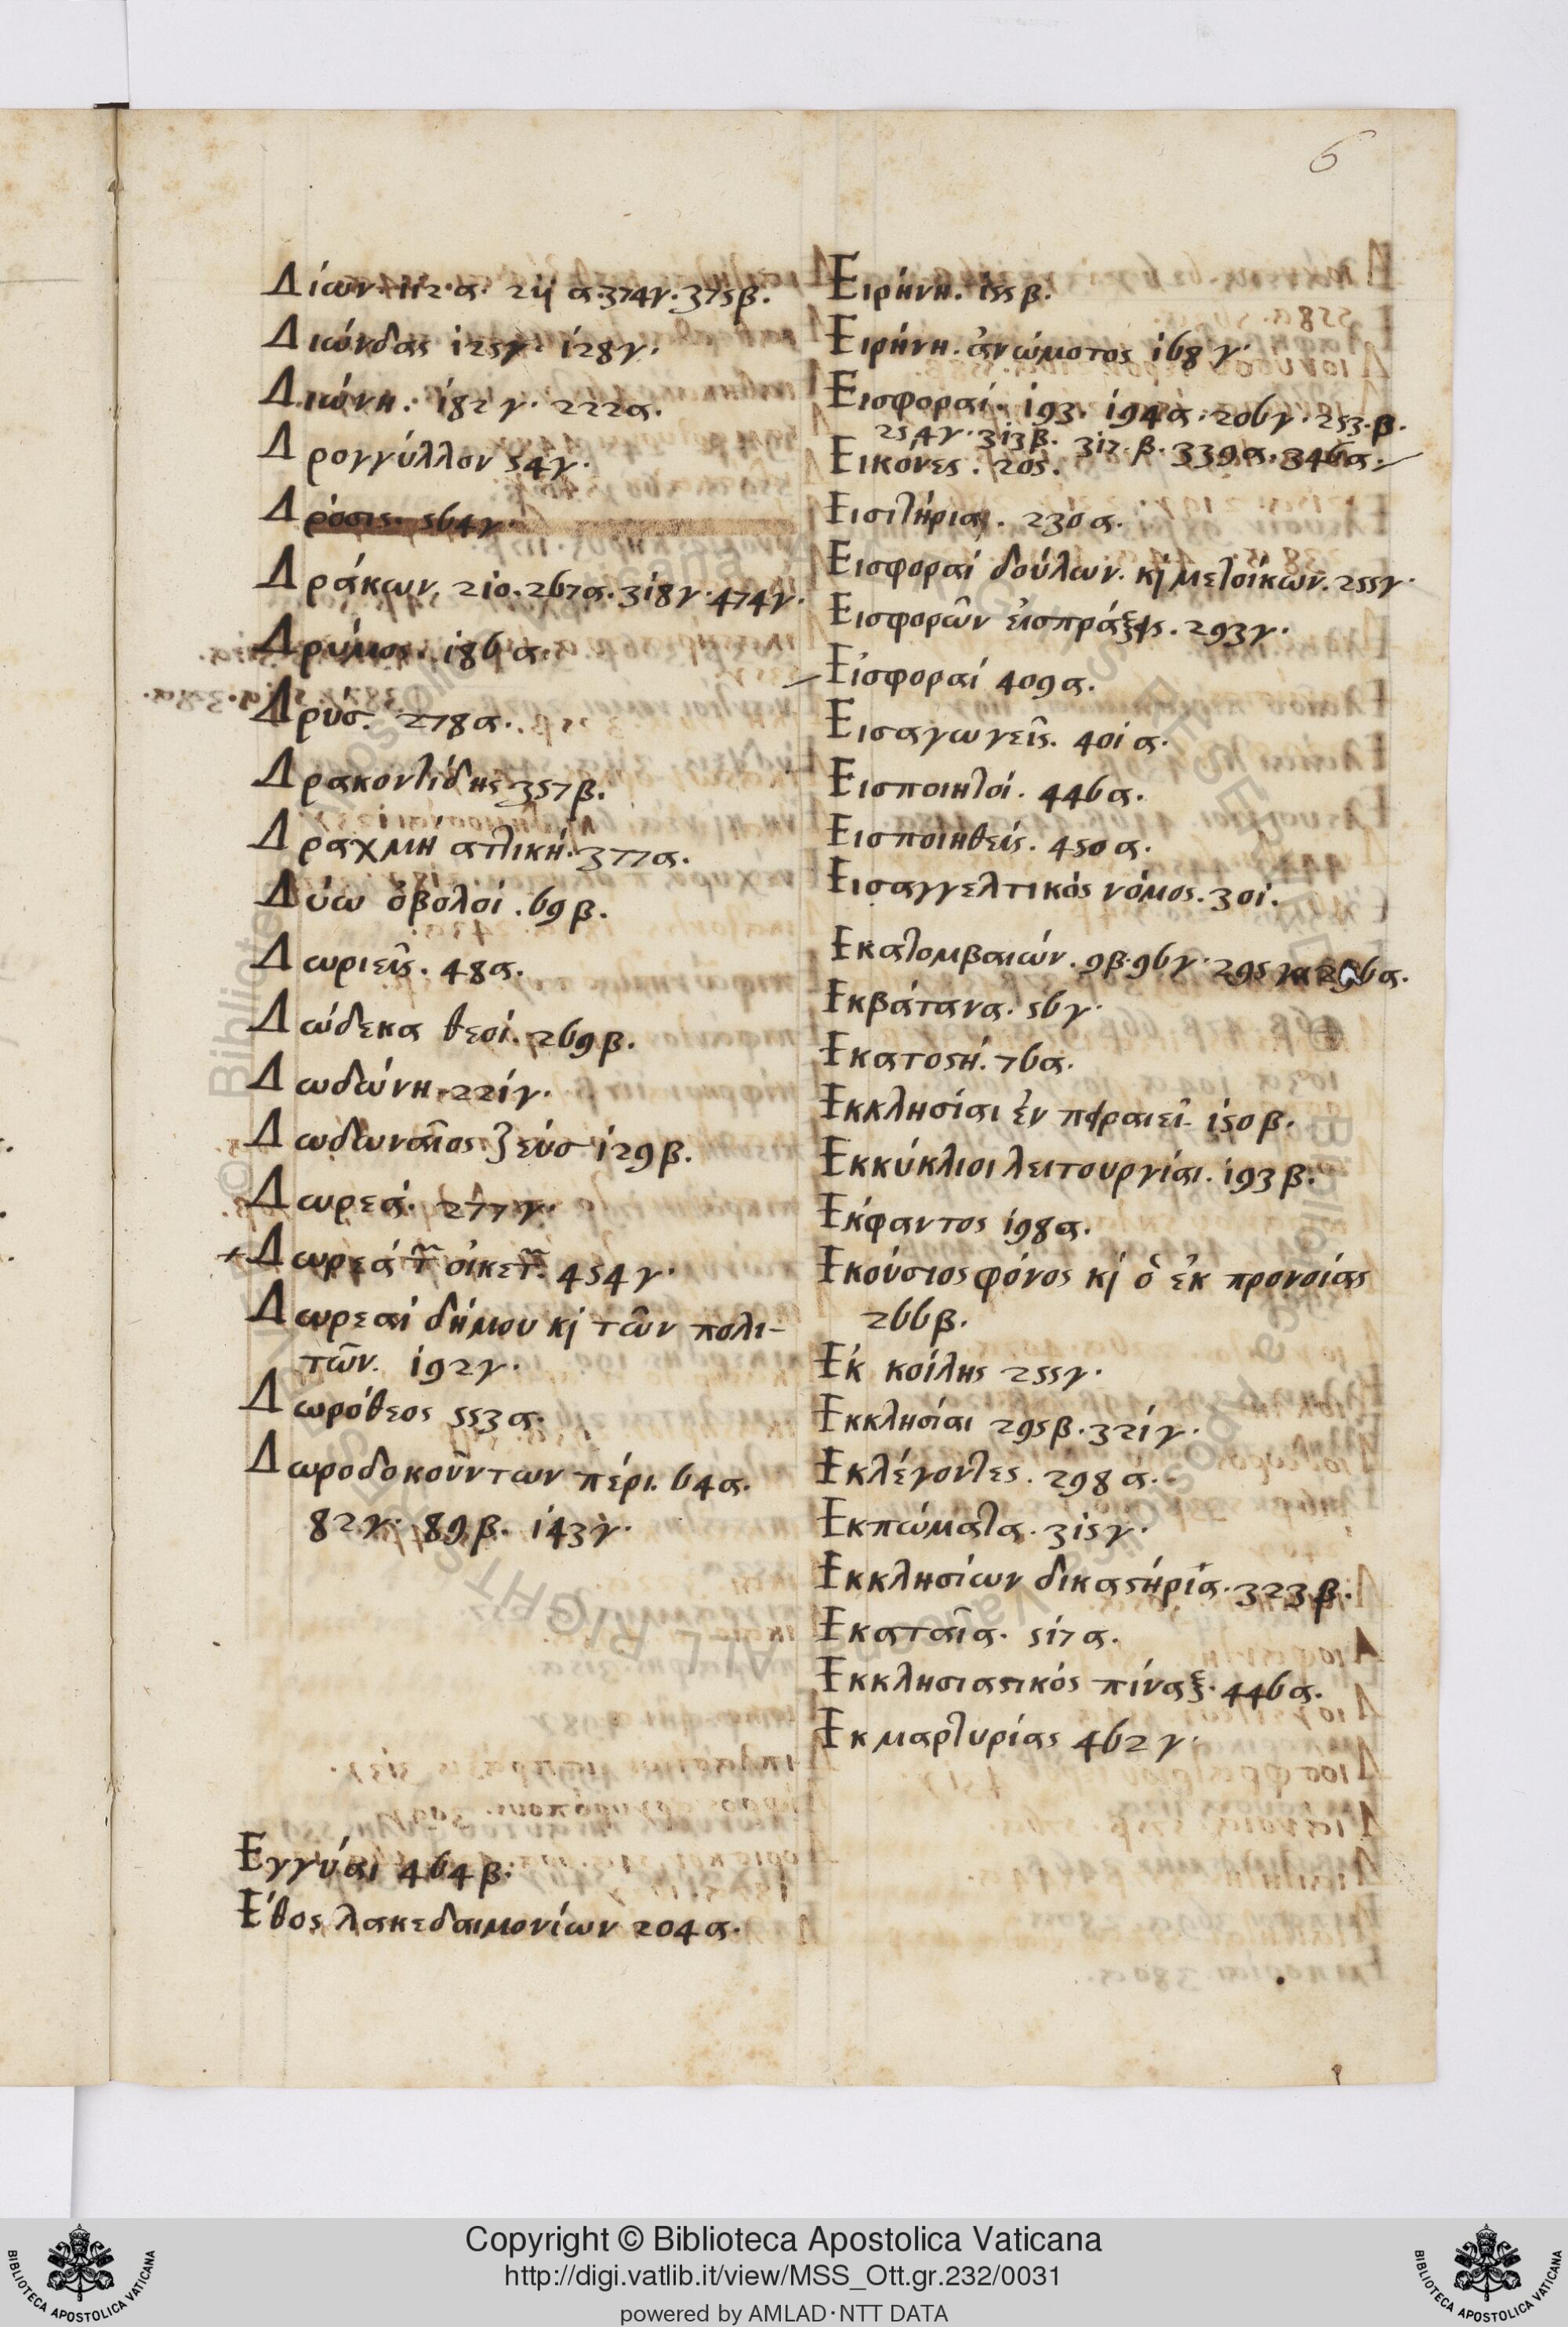 6
Δίων. 112.α. 211 α.374γ.375β.
Διώνδας 125γ. 128γ.
Διώνη. 182γ. 222α.
Δρογγύλλον 54γ.
Δρόσις. 564γ.
Δράκων. 210. 267α. 318γ. 474γ.
Δρύμος. 186α.
Δρυσ. 278α.
Δρακοντίδης 357β.
Δραχμή ατλική. 377α.
Δύω ὀβολοί. 69β.
Δωριεῖς. 48α.
Δώδεκα θεοί. 269β.
Δωδώνη. 221γ.
Δωδωναῖος ζεύσ 129β.
Δωρεά. 277γ.
+ Δωρεά τ͂ οἰκετ͂. 454γ.
Δωρεαί δήμου κ̣ τῶν πολι-
τῶν. 192γ.
Δωρόθεος 553α.
Δωροδοκοῦντων πέρι. 64α.
82γ. 89β. 143γ.
Εγγύαι 464β.
Ἔθος λακεδαιμονίων 204α.
Ειρήνη. 155β.
Ειρήνη. ἀνώμοτος 168γ.
Εισφοραί. 193. 194α. 206γ. 253.β.
254γ. 313β. 317.β. 339α. 346α.
Εικόνες. 205.
Εισιτήρια. 230α.
Εισφοραί δούλων. κ̣ μετοίκων. 255γ.
Εισφορῶν εἰσπράξεις. 293γ.
Εἰσφοραί 409α.
Εισαγωγεῖς. 401α.
Εισποιητοί. 446α.
Εισποιηθείς. 450α.
Εισαγγελτικός νόμος. 301.
Εκατομβαιών. 9β. 96γ. 295 296α.
Εκβάτανα. 56γ.
Εκατοϛή. 76α.
Εκκλησίαι ἐν πειραιεῖ. 150β.
Εκκύκλιοι λειτουργίαι. 193β.
Εκφαντος 198α.
Εκούσιος φόνος κ̣ ὁ ἐκ προνοίας
266β.
Εκ κοίλης 255γ.
Εκκλησίαι 295β. 321γ.
Εκλέγοντες. 298α.
Εκπώματα. 315γ.
Εκκλησίων δικαϛήρία. 323β.
Εκαταῖα. 517α.
Εκκλησιαϛικός πίναξ. 446α.
Εκ μαρτυρίας 462γ.
Copyright © Biblioteca Apostolica Vaticana
http://digi.vatlib.it/view/MSS_Ott.gr.232/0031
powered by AMLAD·NTT DATA
BIBLIOTECA APOSTOLICA VATICANA
BIBLIOTECA APOSTOLICA VATICANA